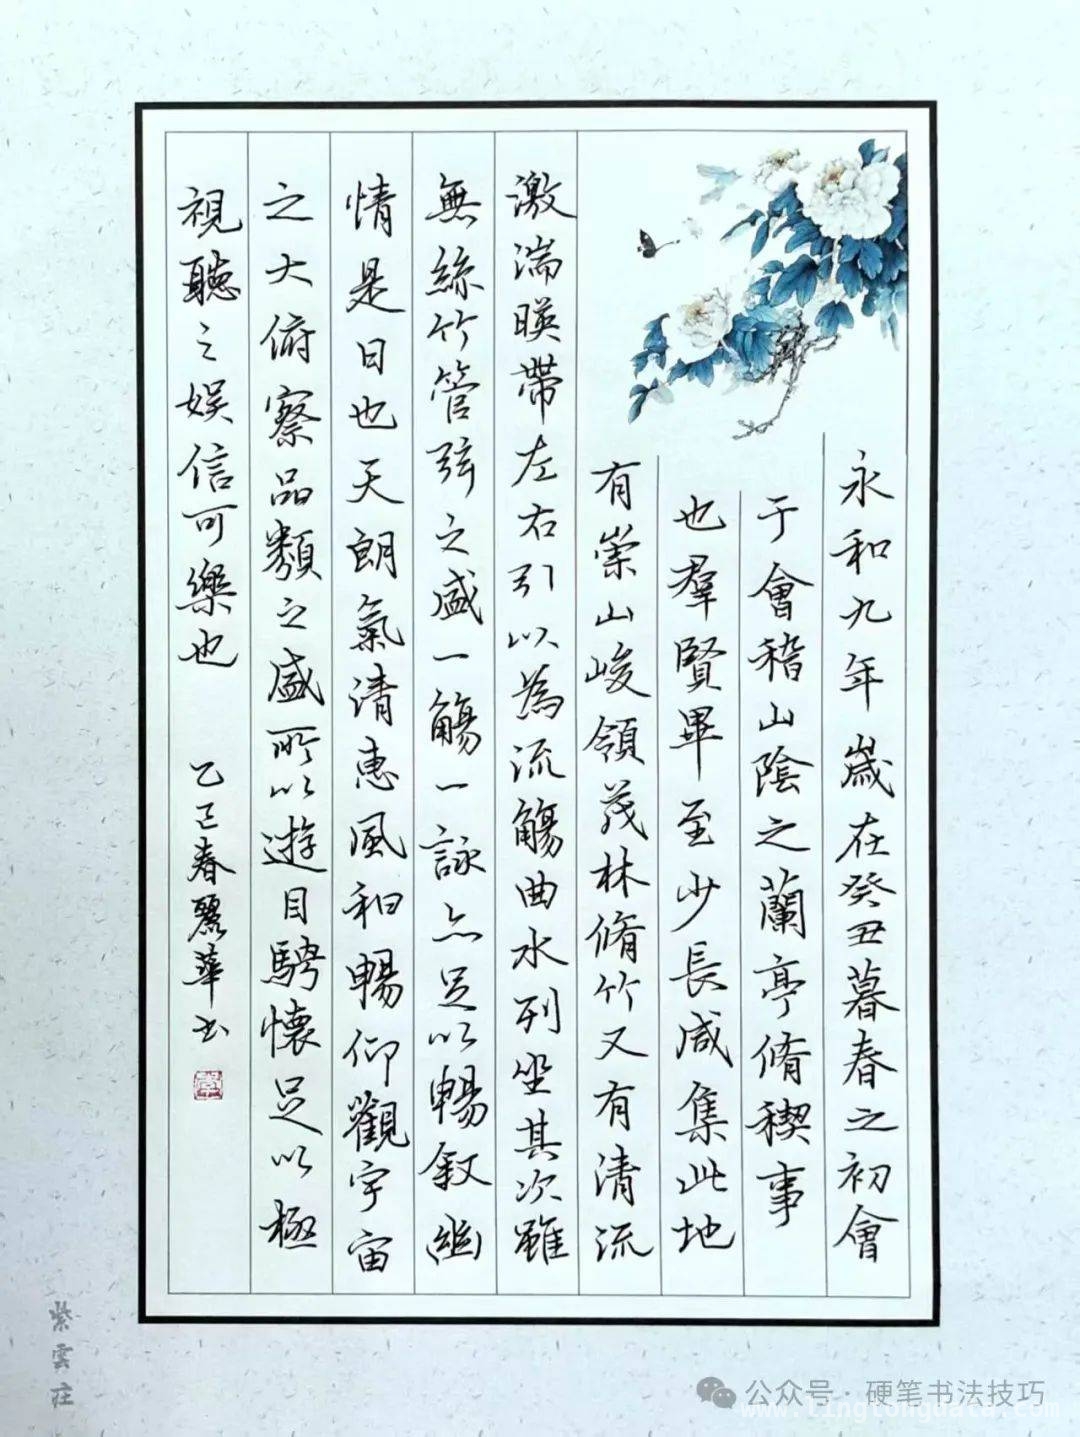 永和九年歲在癸丑暮春之初會
于會稽山陰之蘭亭脩稧事
也羣賢畢至少長咸集此地
有崇山峻領茂林脩竹又有清流
激湍暎帶左右引以為流觴曲水列坐其次雖
無絲竹管弦之盛一觴一詠亦足以暢敘幽
情是日也天朗氣清惠風和暢仰觀宇宙
之大俯察品類之盛所以遊目騁懷足以極
視聽之娛信可樂也 乙巳春麗華书
紫雲莊
公众号·硬笔书法技巧